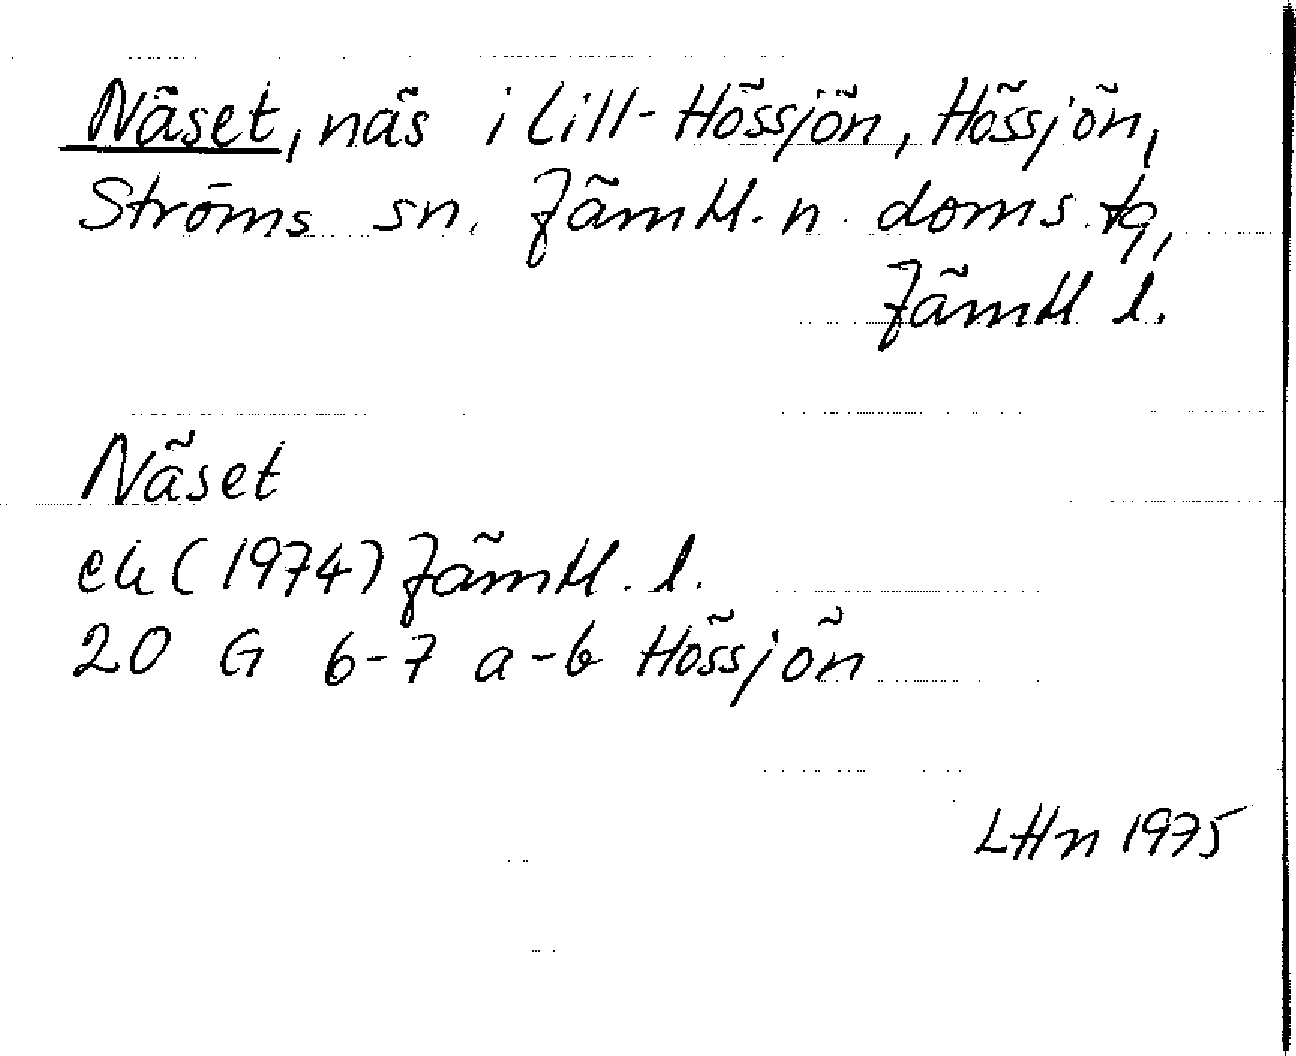 Näset, näs i Lill-Hössjön, Hössjön,
Ströms sn. Jämtl. n. doms. tg,
Jämtl l.
Näset
ek (1974) Jämtl. l.
20 G 6-7 a-b Hössjön
LHn 1975